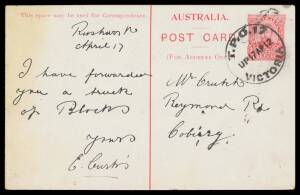 This space may be used for Correspondence.
AUSTRALIA.
POST CARD
(For Address Only
T.P.O. 17
UP 17 AP 12
VICTORIA
April 17
I have forwarded
you a truck
of Blocks
yours
E. Curtis
Mr Crutch
Reymond Rd
Coburg